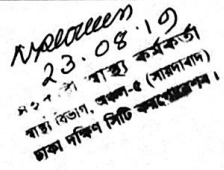 23.08.19
সহকারী স্বাস্থ্য কর্মকর্তা
স্বাস্থ্য বিভাগ, অঞ্চল-৫ (সায়দাবাদ)
ঢাকা দক্ষিণ সিটি কর্পোরেশন।